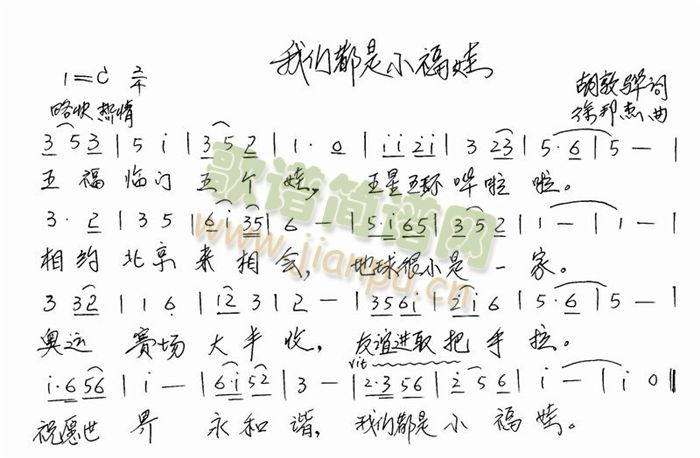 我们都是小福娃
1=C 2/4
胡敦骅词
略快 热情
徐邦杰曲
3 5 3 | 5 i | 3 5 2 | 1· 0 | i i 2 i | 3 2 3 | 5· 6 | 5 — |
五福临门五个娃，五星五环哗啦啦。
3· 2 | 3 5 | 6 i 3 5 | 6 — | 5 i 6 5 | 3 5 2 | 1 — | 1 — |
相约北京来相会，地球很小是一家。
3 3 2 | 1 1 6 | 1 2 3 1 | 2 — | 3 5 6 i | 2 i 6 | 5· 6 | 5 — |
奥运赛场大丰收，友谊进取把手拉。
vit
i· 6 5 6 | i — | 6 i 5 2 | 3 — | 2· 3 5 6 | 2 5 6 | i — | i 0 ||
祝愿世界永和谐，我们都是小福娃。
歌谱简谱网
www.jianpu.cn